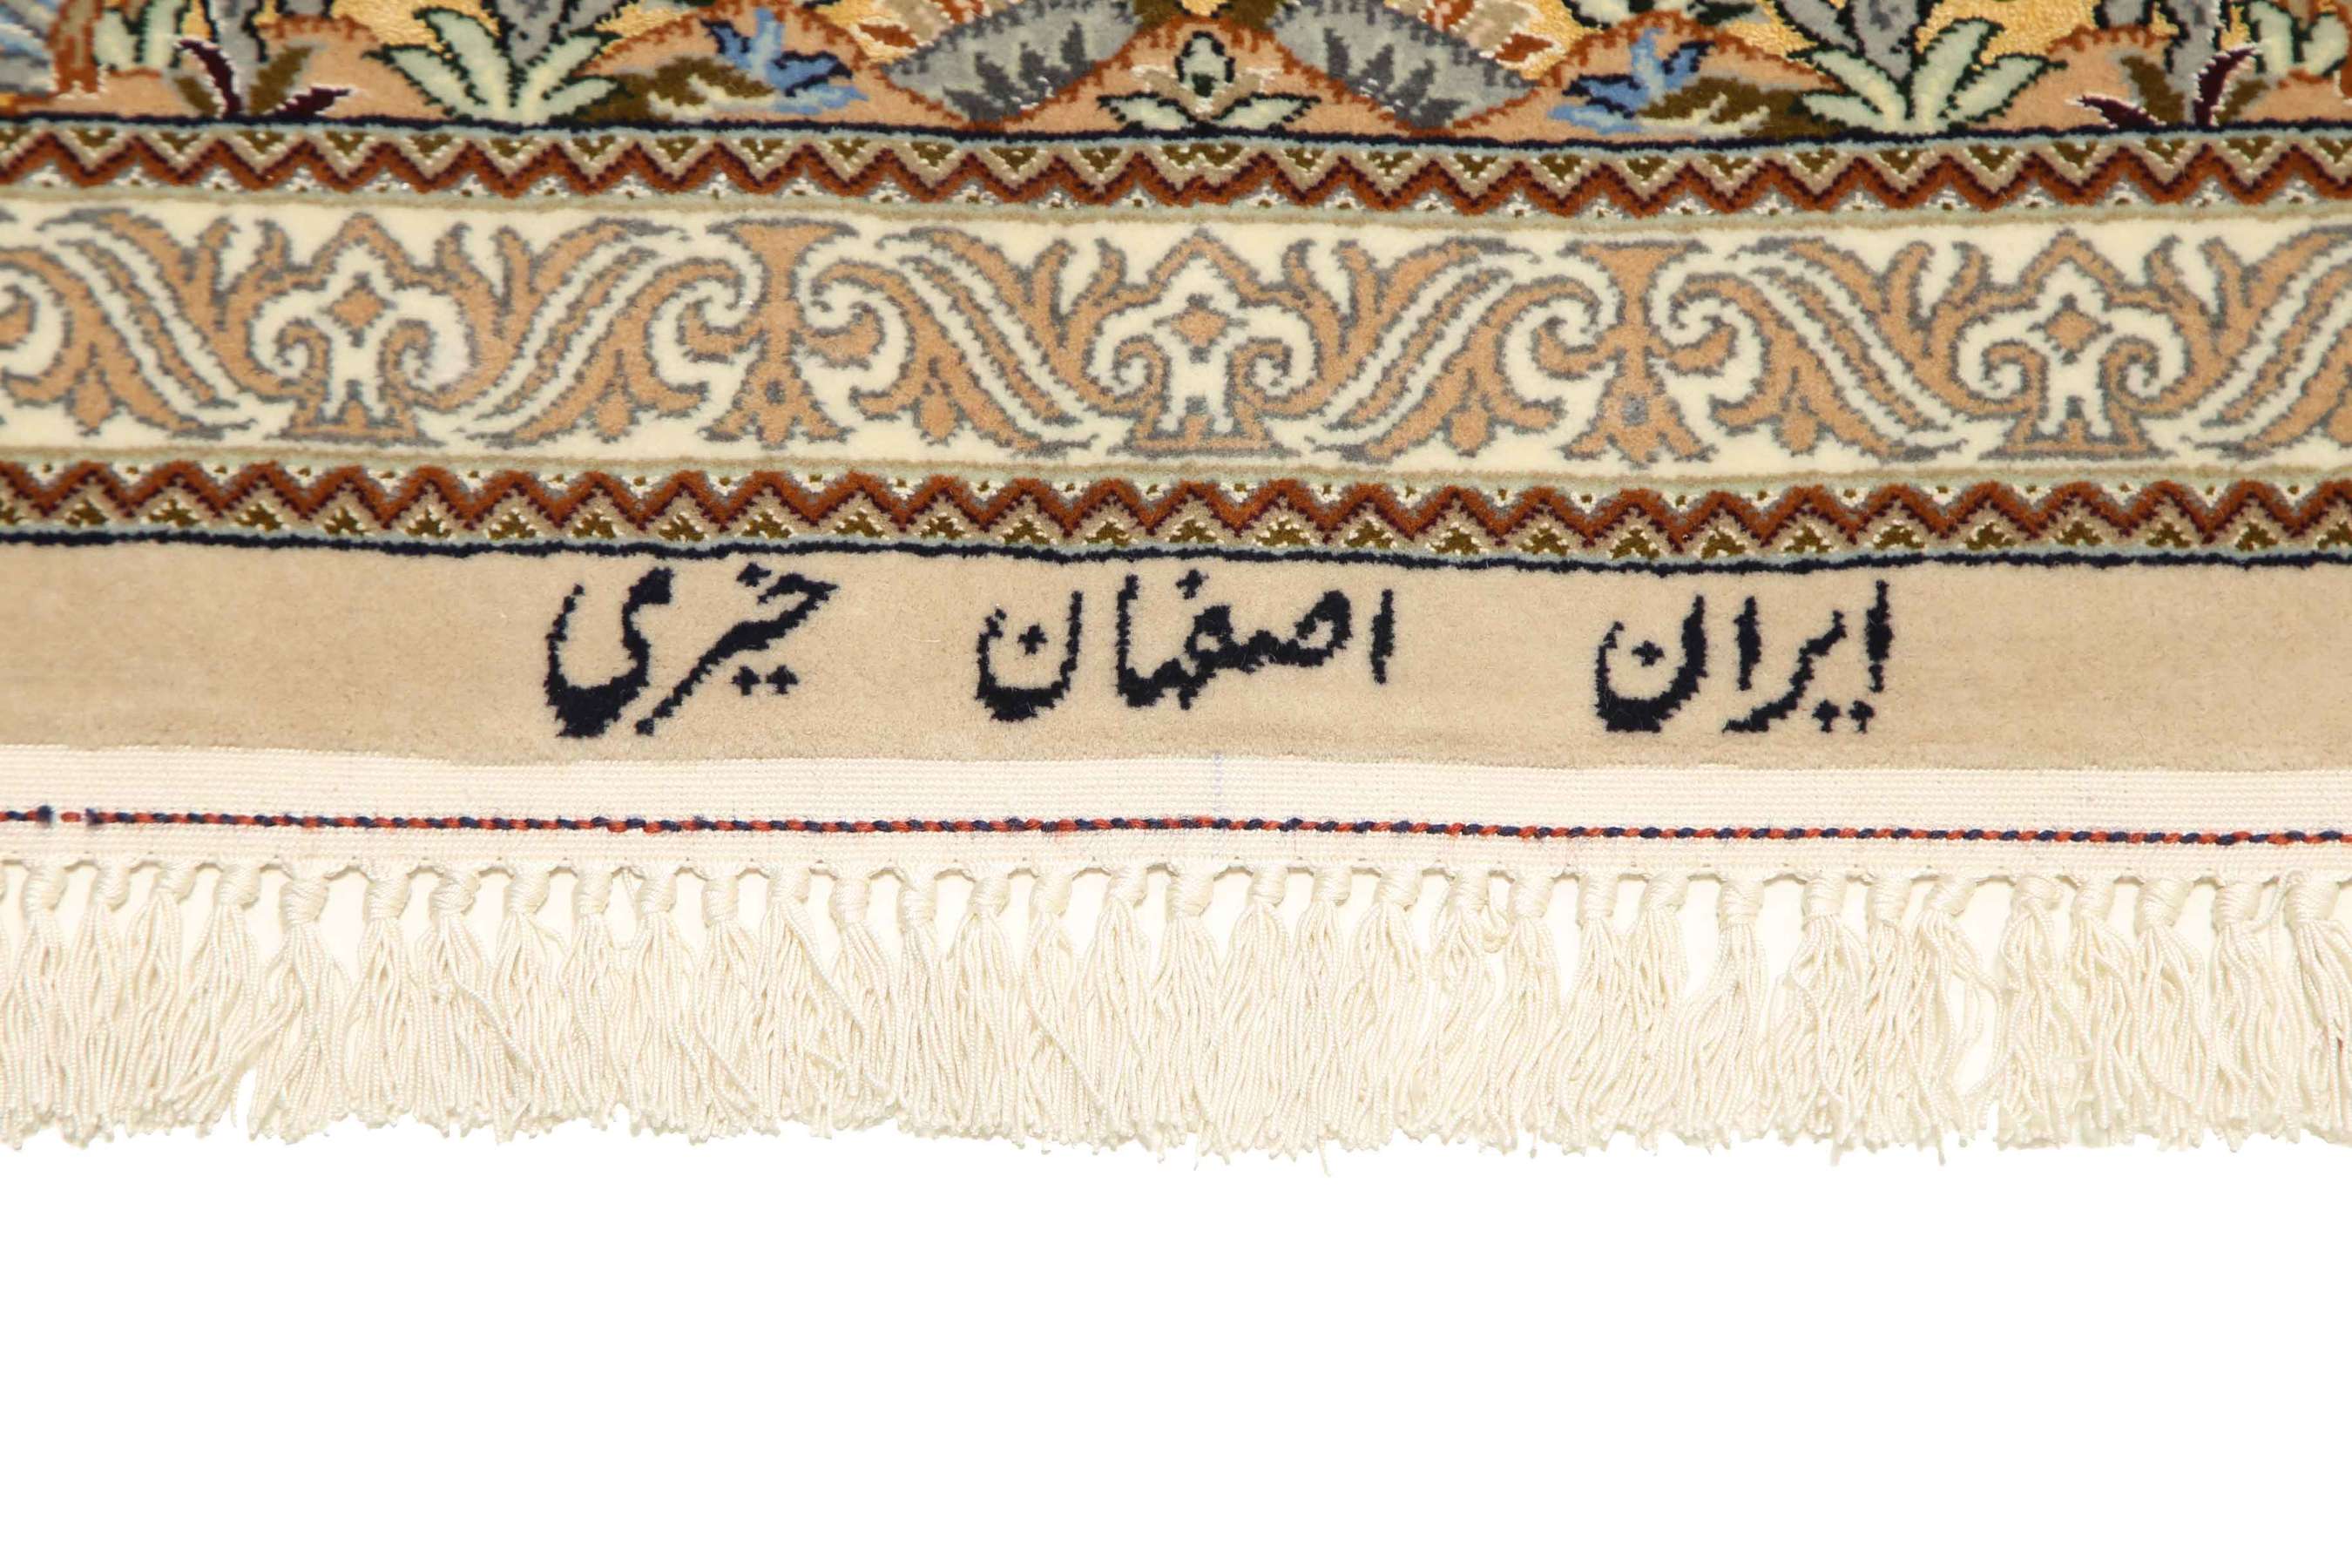 ایران اصفهان خیری